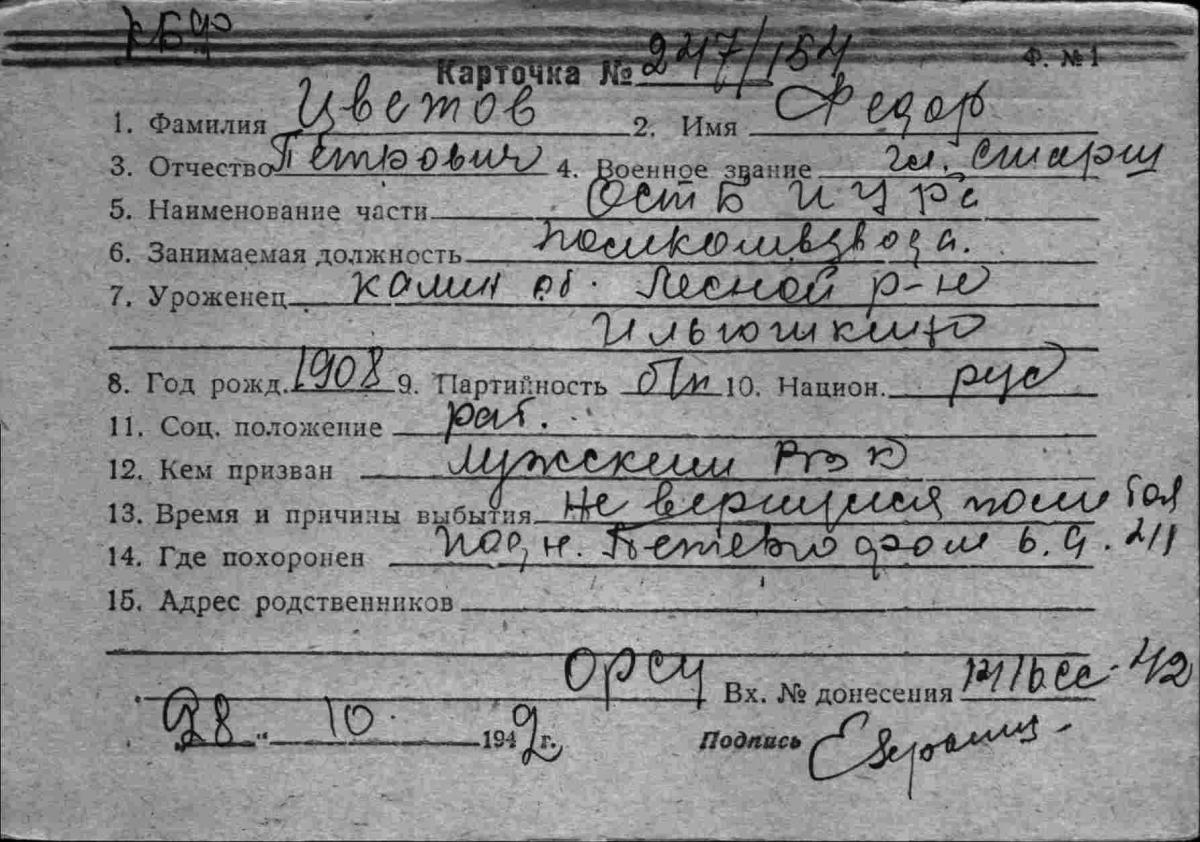 КБФ
Карточка № 247/154 Ф. № 1
1. Фамилия Цветов 2. Имя Федор
3. Отчество Петрович 4. Военное звание гл. старш
5. Наименование части ОСТБ И УРа
6. Занимаемая должность помкомвзвода.
7. Уроженец калин об. Лесной р-н
8. Год рожд. 1908 9. Партийность б/п 10. Национ. рус
11. Соц. положение раб.
12. Кем призван лужским РВК
13. Время и причины выбытия не вернулся после боя
14. Где похоронен под н. Петергофом 6.9.
15. Адрес родственников
ОРСУ Вх. № донесения 42
„28“ 10. 1942 г. Подпись